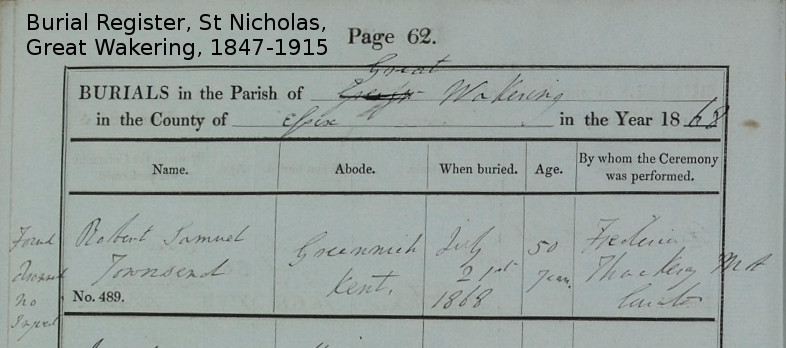 Burial Register, St Nicholas,
Great Wakering, 1847-1915
Page 62.
Great
BURIALS in the Parish of Wakering
in the County of Essex in the Year 18 68
Name. Abode. When buried. Age. By whom the Ceremony
was performed.
Found
Drowned
no
Inquest
Robert Samuel
Townsend
No. 489.
Greenwich
Kent.
July
21st
1868
50
years
Frederick
Thackeray MA
Curate